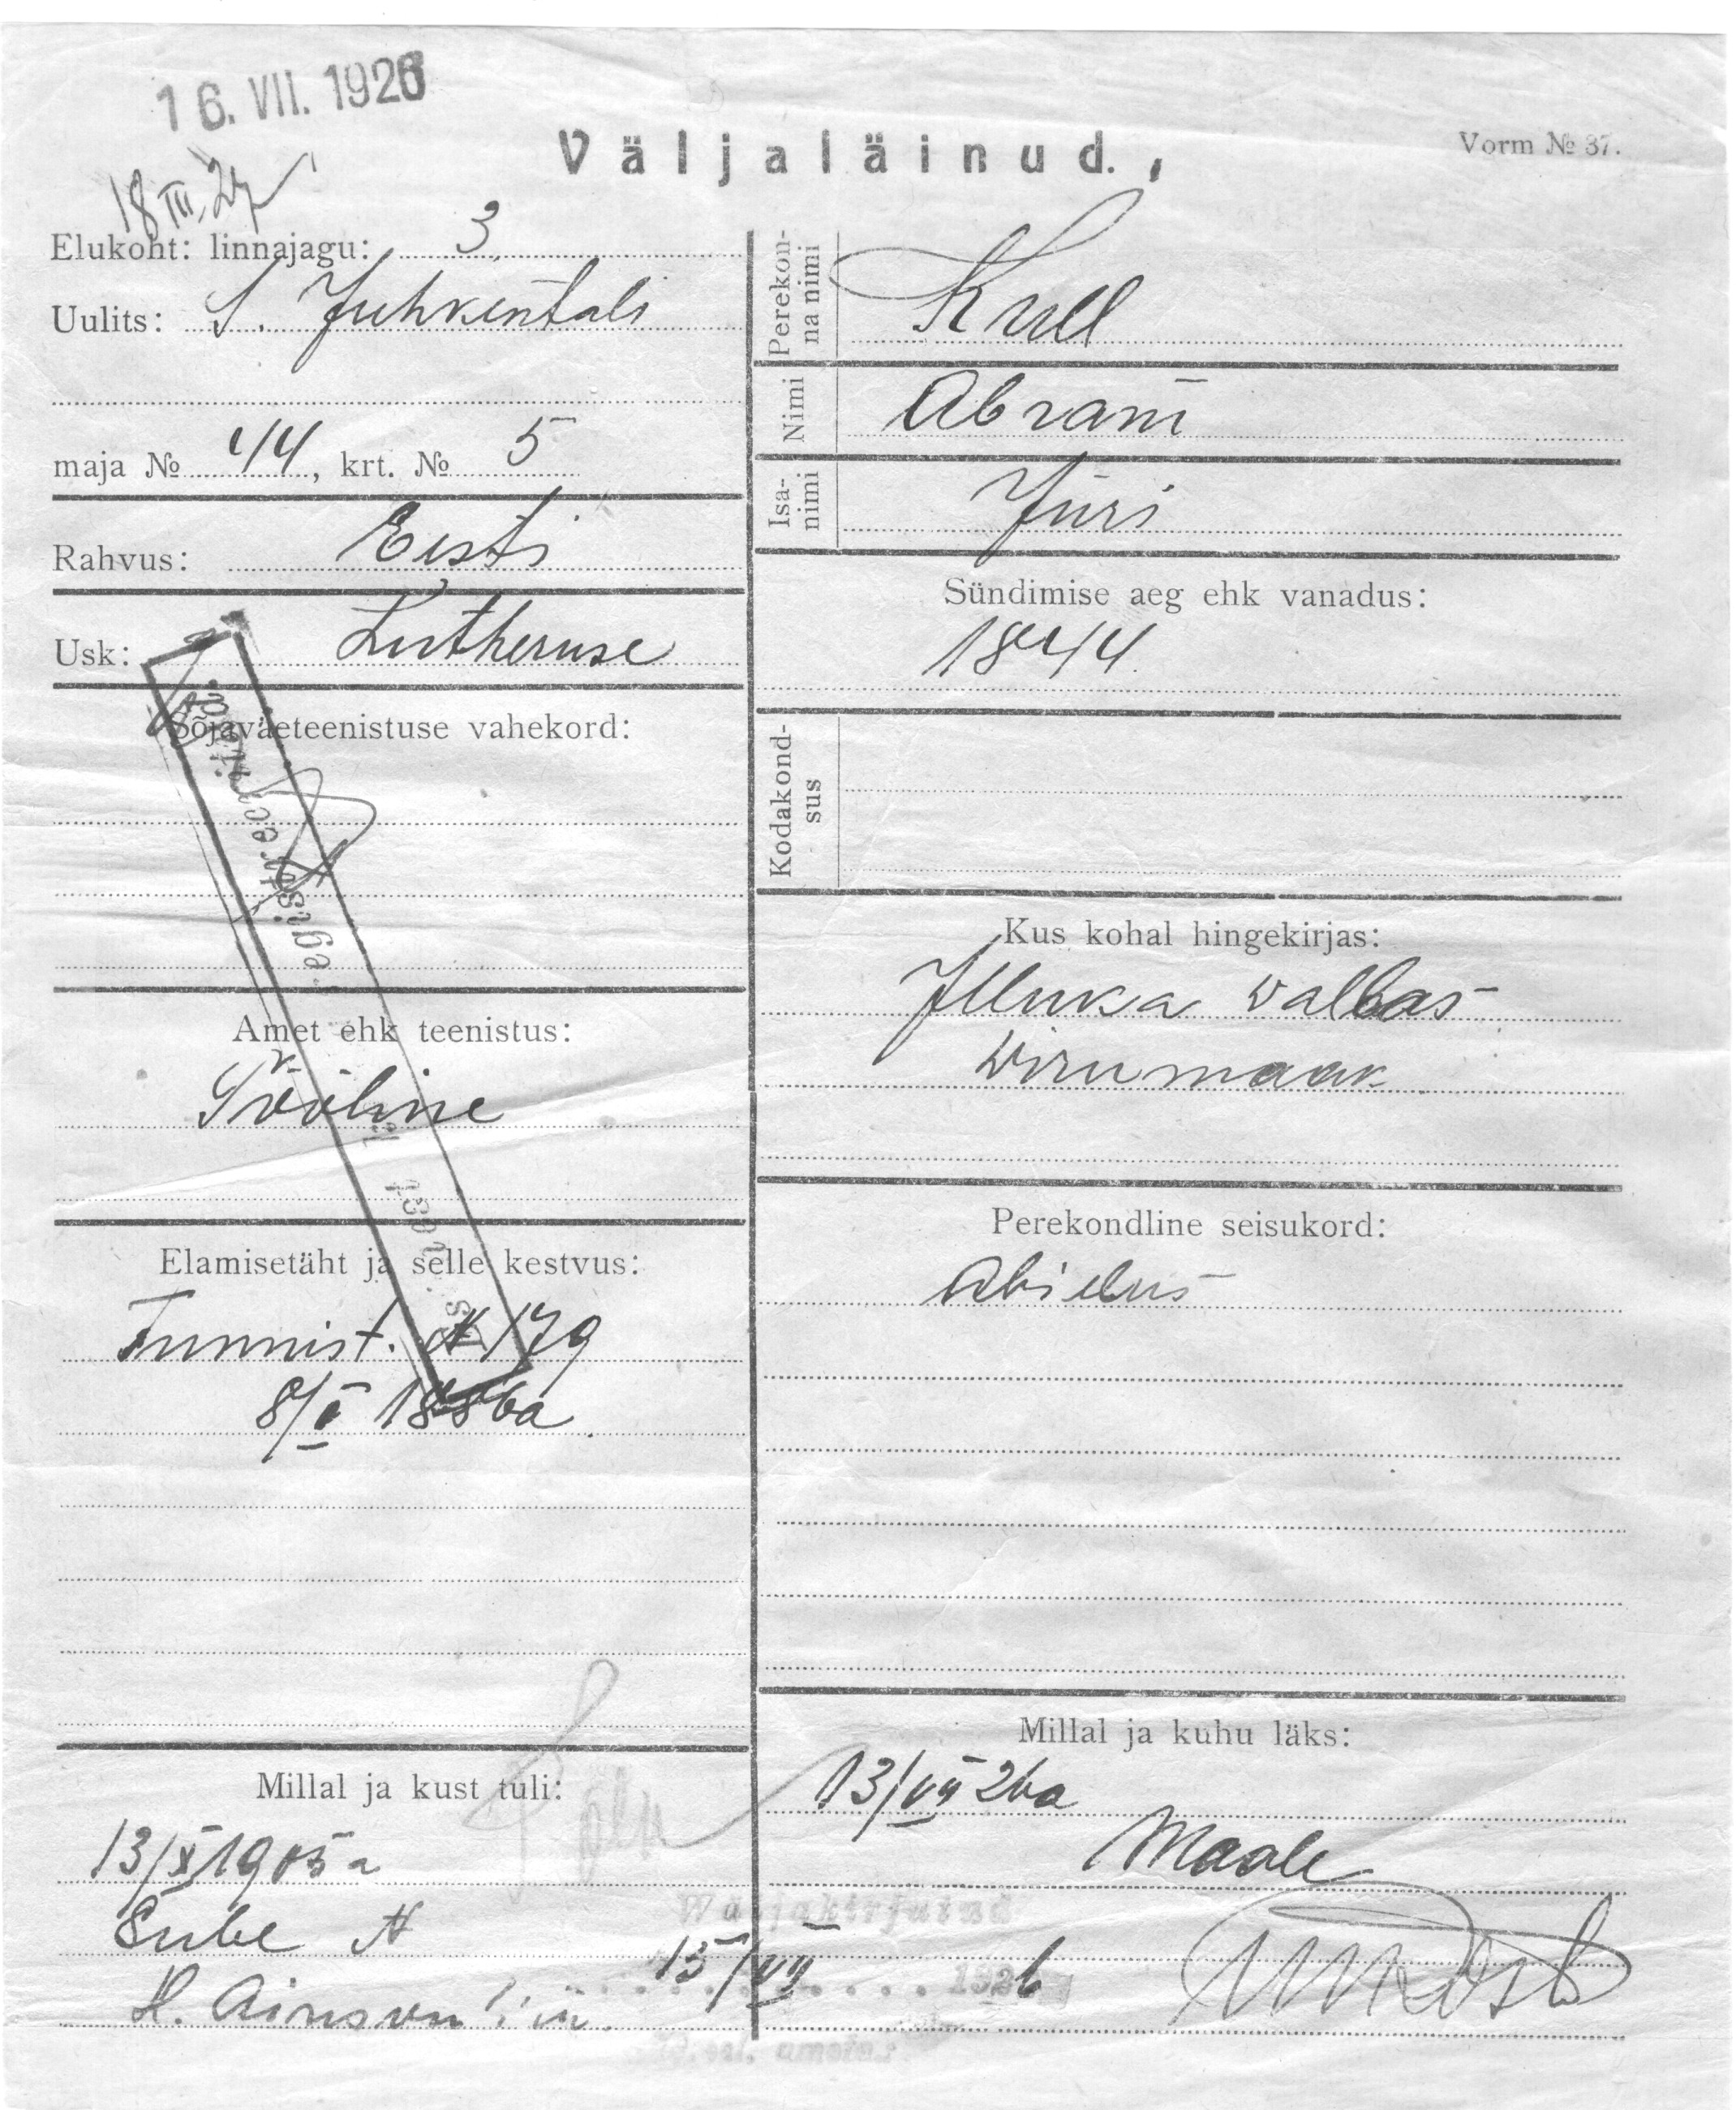 16. VII. 1926
18 III. 27
Väljaläinud.
Vorm № 37.
Elukoht: linnajagu: 3
Uulits: S. Juhkentali
maja № 44, krt. № 5
Rahvus: Eesti
Usk: Lutheruse
Sõjaväeteenistuse vahekord:
Amet ehk teenistus:
Tööline
Elamisetäht ja selle kestvus:
Tunnist. N 179
8/V 1886a
Millal ja kust tuli:
13/X 1905 a
Sube N
H. Ainson
Perekonna nimi
Kull
Nimi
Abram
Isanimi
Jüri
Sündimise aeg ehk vanadus:
1844
Kodakondsus
Kus kohal hingekirjas:
Illuka wallas
Wirumaa
Perekondline seisukord:
Abielus
Millal ja kuhu läks:
13/VII 26a
Maale
Wäljakirjutud
15/VII 1926
registreeritud.